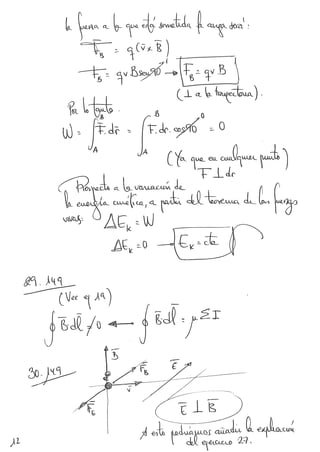 la fuerza a la que está sometida la carga será:
F_B = q(v̄ x B̄)
F_B = q v B sen90 → F_B = q v B
(⊥ a la trayectoria).
Por lo tanto:
W = ∫_A^B F̄.dr̄ = ∫_A^B F.dr.cos90 = 0
(Ya que en cualquier punto)
F ⊥ dr
Respecto a la variación de
la energía cinética, a partir del teorema de las fuerzas
vivas: ΔE_K = W
ΔE_K = 0 → E_K = cte
29. 149
(Ver ej 19)
∮ B̄dl̄ ≠ 0 ← ∮ B̄dl̄ = μ Σ I
30. 149
B̄ F̄_B Ē
v̄
F̄_E
Ē ⊥ B̄
A esto podríamos añadir la explicación
del ejercicio 27.
12